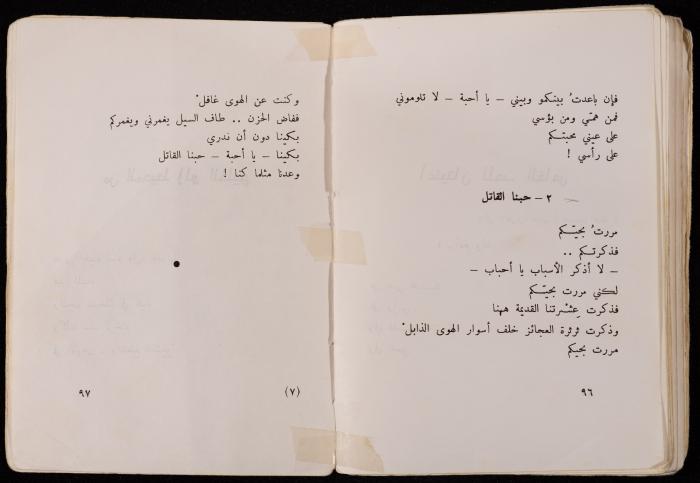 فإن باعدتُ بينكو وبيني – يا أحبة – لا تلوموني
فمن همّي ومن بؤسي
على عيني محبتكم
على رأسي !
٢ – حبنا القاتل
مررتُ بحيّكم
فذكرتكم ..
– لا أذكر الأسباب يا أحباب –
لكني مررت بحيّكم
فذكرت عِشْرتنا القديمة ههنا
وذكرت ثرثرة العجائز خلف أسوار الهوى الذابلْ
مررت بحيكم
٩٦
وكنت عن الهوى غافلْ
ففاض الحزن .. طاف السيل يغمرني ويغمركم
بكينا دون أن ندري
بكينا – يا أحبة – حبنا القاتل
وعدنا مثلما كنا !
(٧)
٩٧